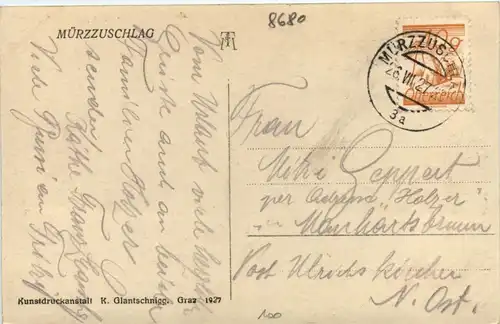 MÜRZZUSCHLAG
8680
MÜRZZUSCHLAG
26.VII.27
3a
Österreich
Vom Urlaub viele herzliche
Grüsse auch an deine
Familien Holzer
senden
Käthe Franz
Viele Bussi an Fritzi
Frau
Mitzi Geppert
per Adresse „Holzer“
Manhartsbrunn
Post Ulrichskirchen
N. Öst.
Kunstdruckanstalt K. Glantschnigg, Graz 1927
100